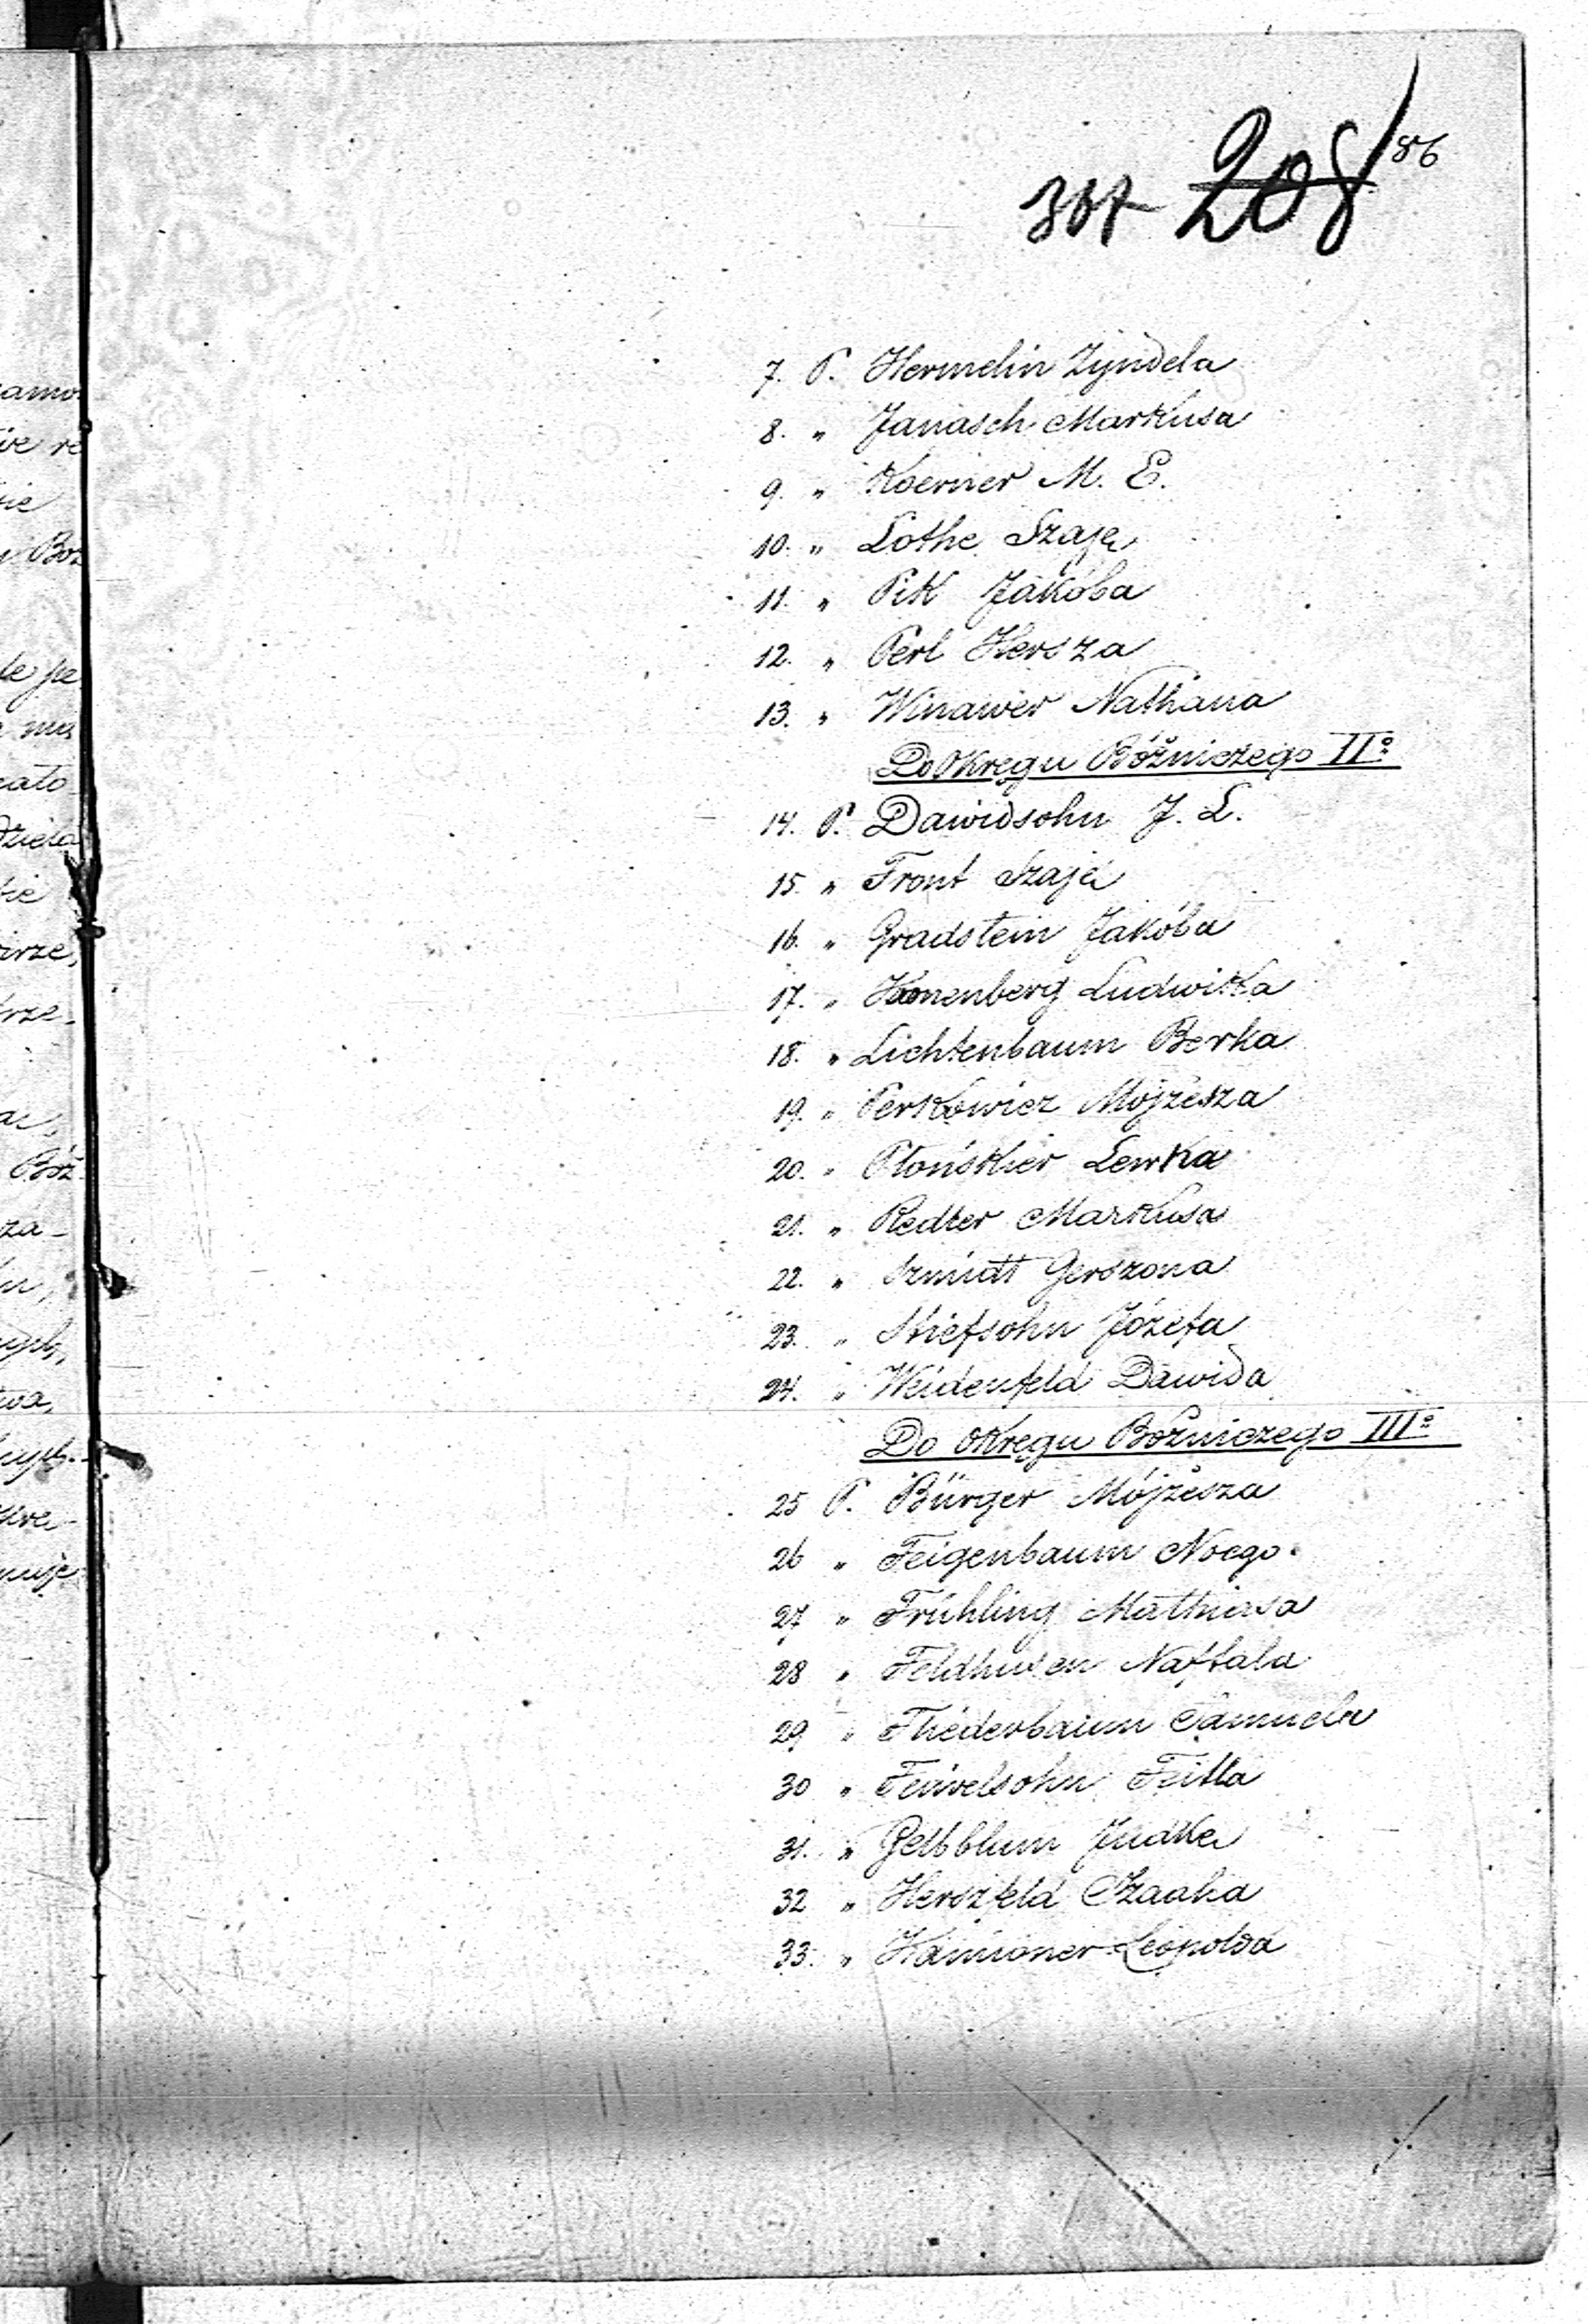 307 208 86
7. P. Hermelin Zyndela
8. " Janasch Markusa
9. " Koerner M. E.
10. " Lothe Szaję
11. " Pik Jakóba
12. " Perl Hersza
13. " Winawer Nathana
Do Okręgu Bóżniczego IIº
14. P. Dawidsohn J. L.
15. " Front Szaję
16. " Gradstein Jakóba
17. " Ludwika
18. " Lichtenbaum Berka
19. " Perkowicz Mojżesza
20. " Płońskier Lewka
21. " Redler Markusa
22. " Szmidt Gerszona
23. " Stiefsohn Józefa
24. " Weidenfeld Dawida
Do Okręgu Bóżniczego IIIº
25 P. Bürger Mójżesza
26 " Feigenbaum Noego
27 " Frühling Mathiasa
28 " Feldhusen Naftala
29 " Samuela
30 " Feiwelsohn
31. " Gelbblum Judkę
32 " Herszfeld Izaaka
33. " Kamioner Leopolda